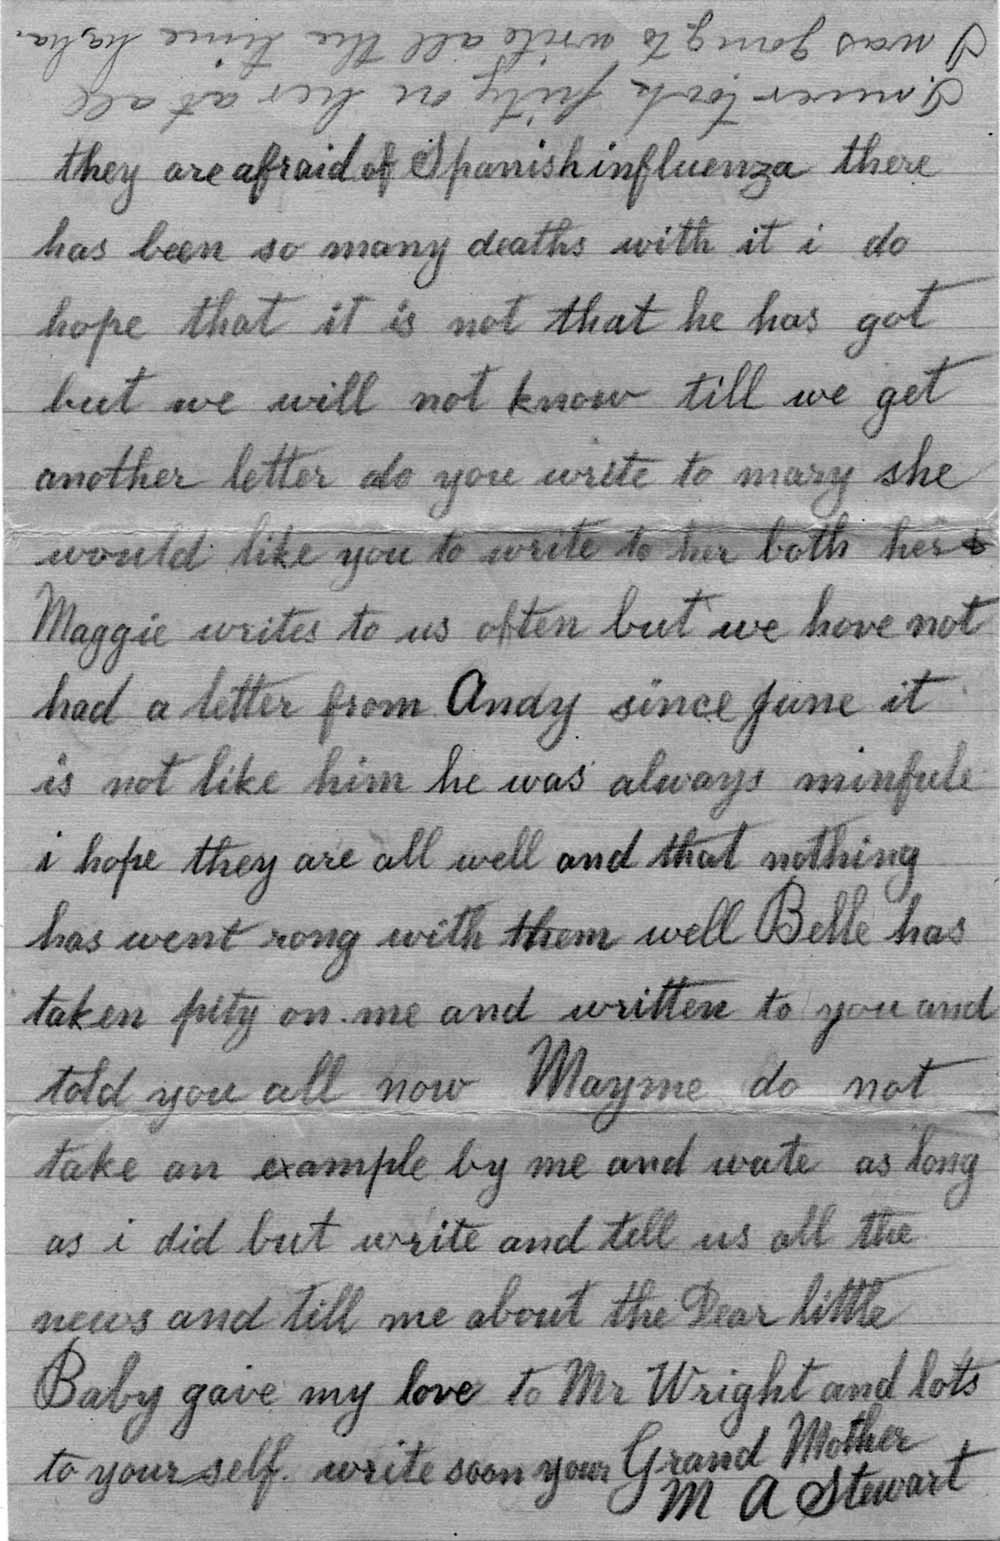 I never took pity on her at all
I was going to write all the time ha ha.
they are afraid of Spanish influenza there
has been so many deaths with it i do
hope that it is not that he has got
but we will not know till we get
another letter do you write to mary she
would like you to write to her both her &
Maggie writes to us often but we hove not
had a letter from Andy since June it
is not like him he was always minfule
i hope they are all well and that nothing
has went rong with them well Belle has
taken pity on me and written to you and
told you all now Mayme do not
take an example by me and wate as long
as i did but write and tell us all the
news and till me about the Dear little
Baby gave my love to Mr Wright and lots
to your self. write soon your Grand Mother
M A Stewart